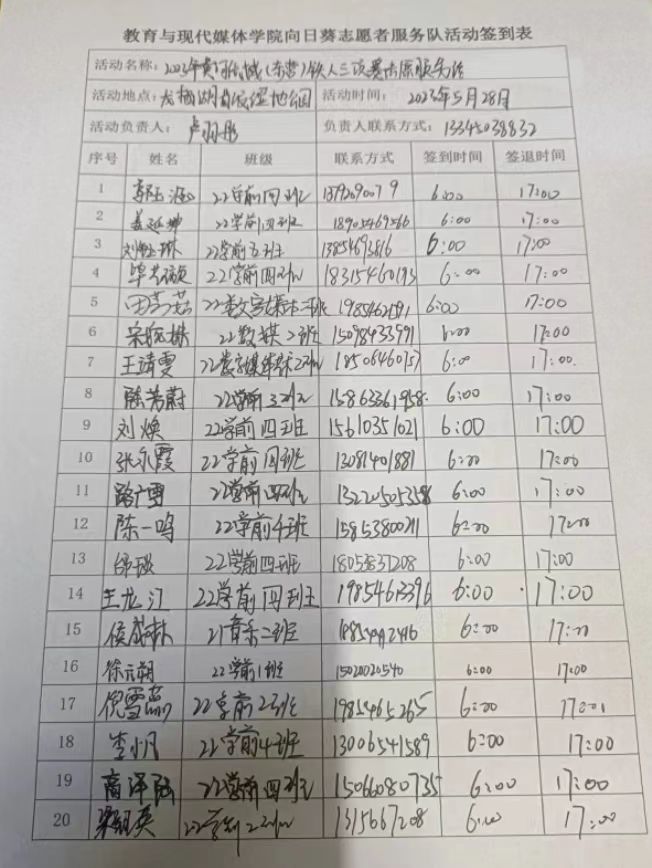 教育与现代媒体学院向日葵志愿者服务队活动签到表
活动名称：2023年黄河口城(东营)铁人三项赛志愿服务活
活动地点： 活动时间： 2023年5月28日
活动负责人： 卢羽彤 负责人联系方式：13345038832
序号 姓名 班级 联系方式 签到时间 签退时间
1 22学前四班 6:00 17:00
2 22学前四班 18905469566 6:00 17:00
3 22学前五班 13854693816 6:00 17:00
4 22学前四班 18315460193 6:00 17:00
5 6:00 17:00
6 22数媒2班 15098433991 6:00 17:00
7 王靖雯 22数字媒体技术2班 6:00 17:00
8 陈芳蔚 22学前3班 15863361958 6:00 17:00
9 刘焕 22学前四班 15610351021 6:00 17:00
10 张永霞 22学前四班 13081401881 6:00 17:00
11 路广雪 22学前四班 13220505358 6:00 17:00
12 陈一鸣 22学前4班 6:00 17:00
13 22学前四班 18053837208 6:00 17:00
14 王龙江 22学前四班 6:00 17:00
15 侯成林 21音乐二班 6:00 17:00
16 徐元朔 22学前1班 15020020540 6:00 17:00
17 倪雪蕊 22学前2班 6:00 17:00
18 李小凡 22学前4班 13006541589 6:00 17:00
19 高泽阳 22学前四班 15066080735 6:00 17:00
20 22学前2班 6:00 17:00